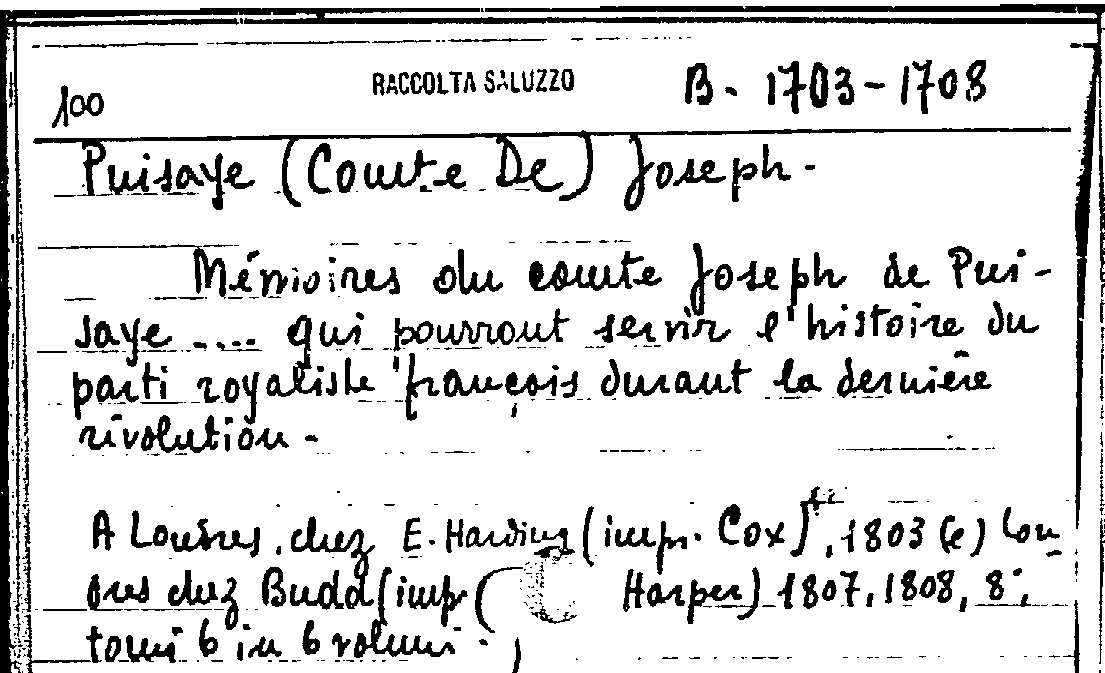 100 RACCOLTA SALUZZO B. 1703-1708
Puisaye (Comte De) Joseph.
Mémoires du comte Joseph de Pui-
saye .... qui pourront servir l'histoire du
parti royaliste françois durant la dernière
révolution.
A Londres, chez E. Harding (impr. Cox), 1803 (e) Lon
dres chez Budd (impr. Harper) 1807, 1808, 8°,
tomi 6 in 6 volumi.